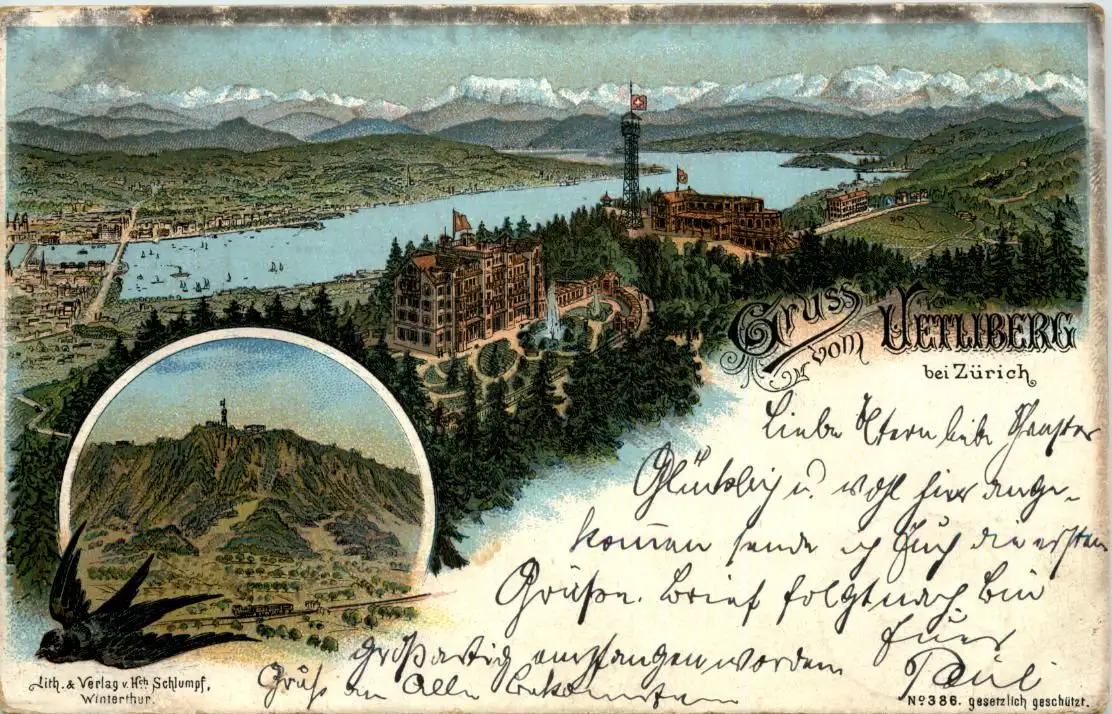 Gruss
vom UETLIBERG
bei Zürich
Liebe Eltern liebe Schwester
Glücklich u. wohl hier ange-
kommen sende ich Euch die ersten
Grüße. Brief folgt nach. Bin
großartig empfangen worden
Euer
Paul
Gruß an Alle Bekannten
Lith. & Verlag v. Hch. Schlumpf,
Winterthur.
No 386. gesetzlich geschützt.